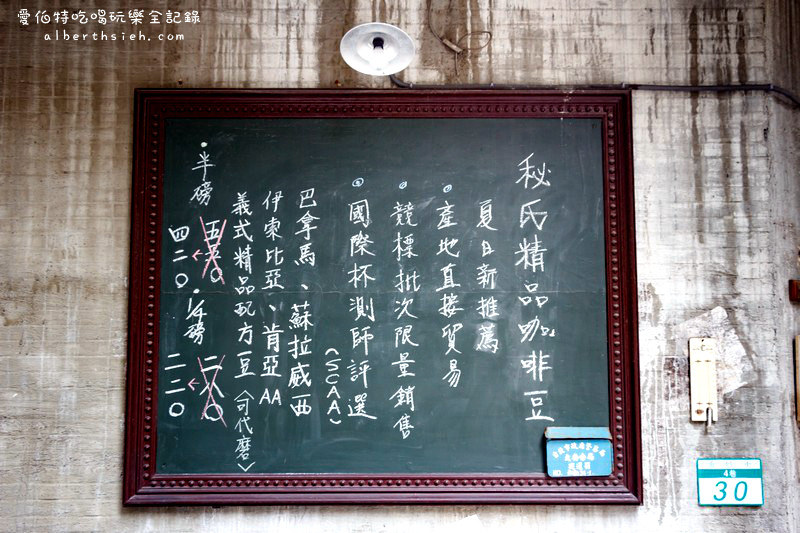 愛伯特吃喝玩樂全記錄
alberthsieh.com
秘氏精品咖啡豆
夏日新推薦
•產地直接貿易
•競標批次限量銷售
•國際杯測師評選
(SCAA)
巴拿馬、蘇拉威西
伊索比亞、肯亞AA
義式精品配方豆(可代磨)
•半磅 四二〇
•¼磅 二二〇
4巷
30